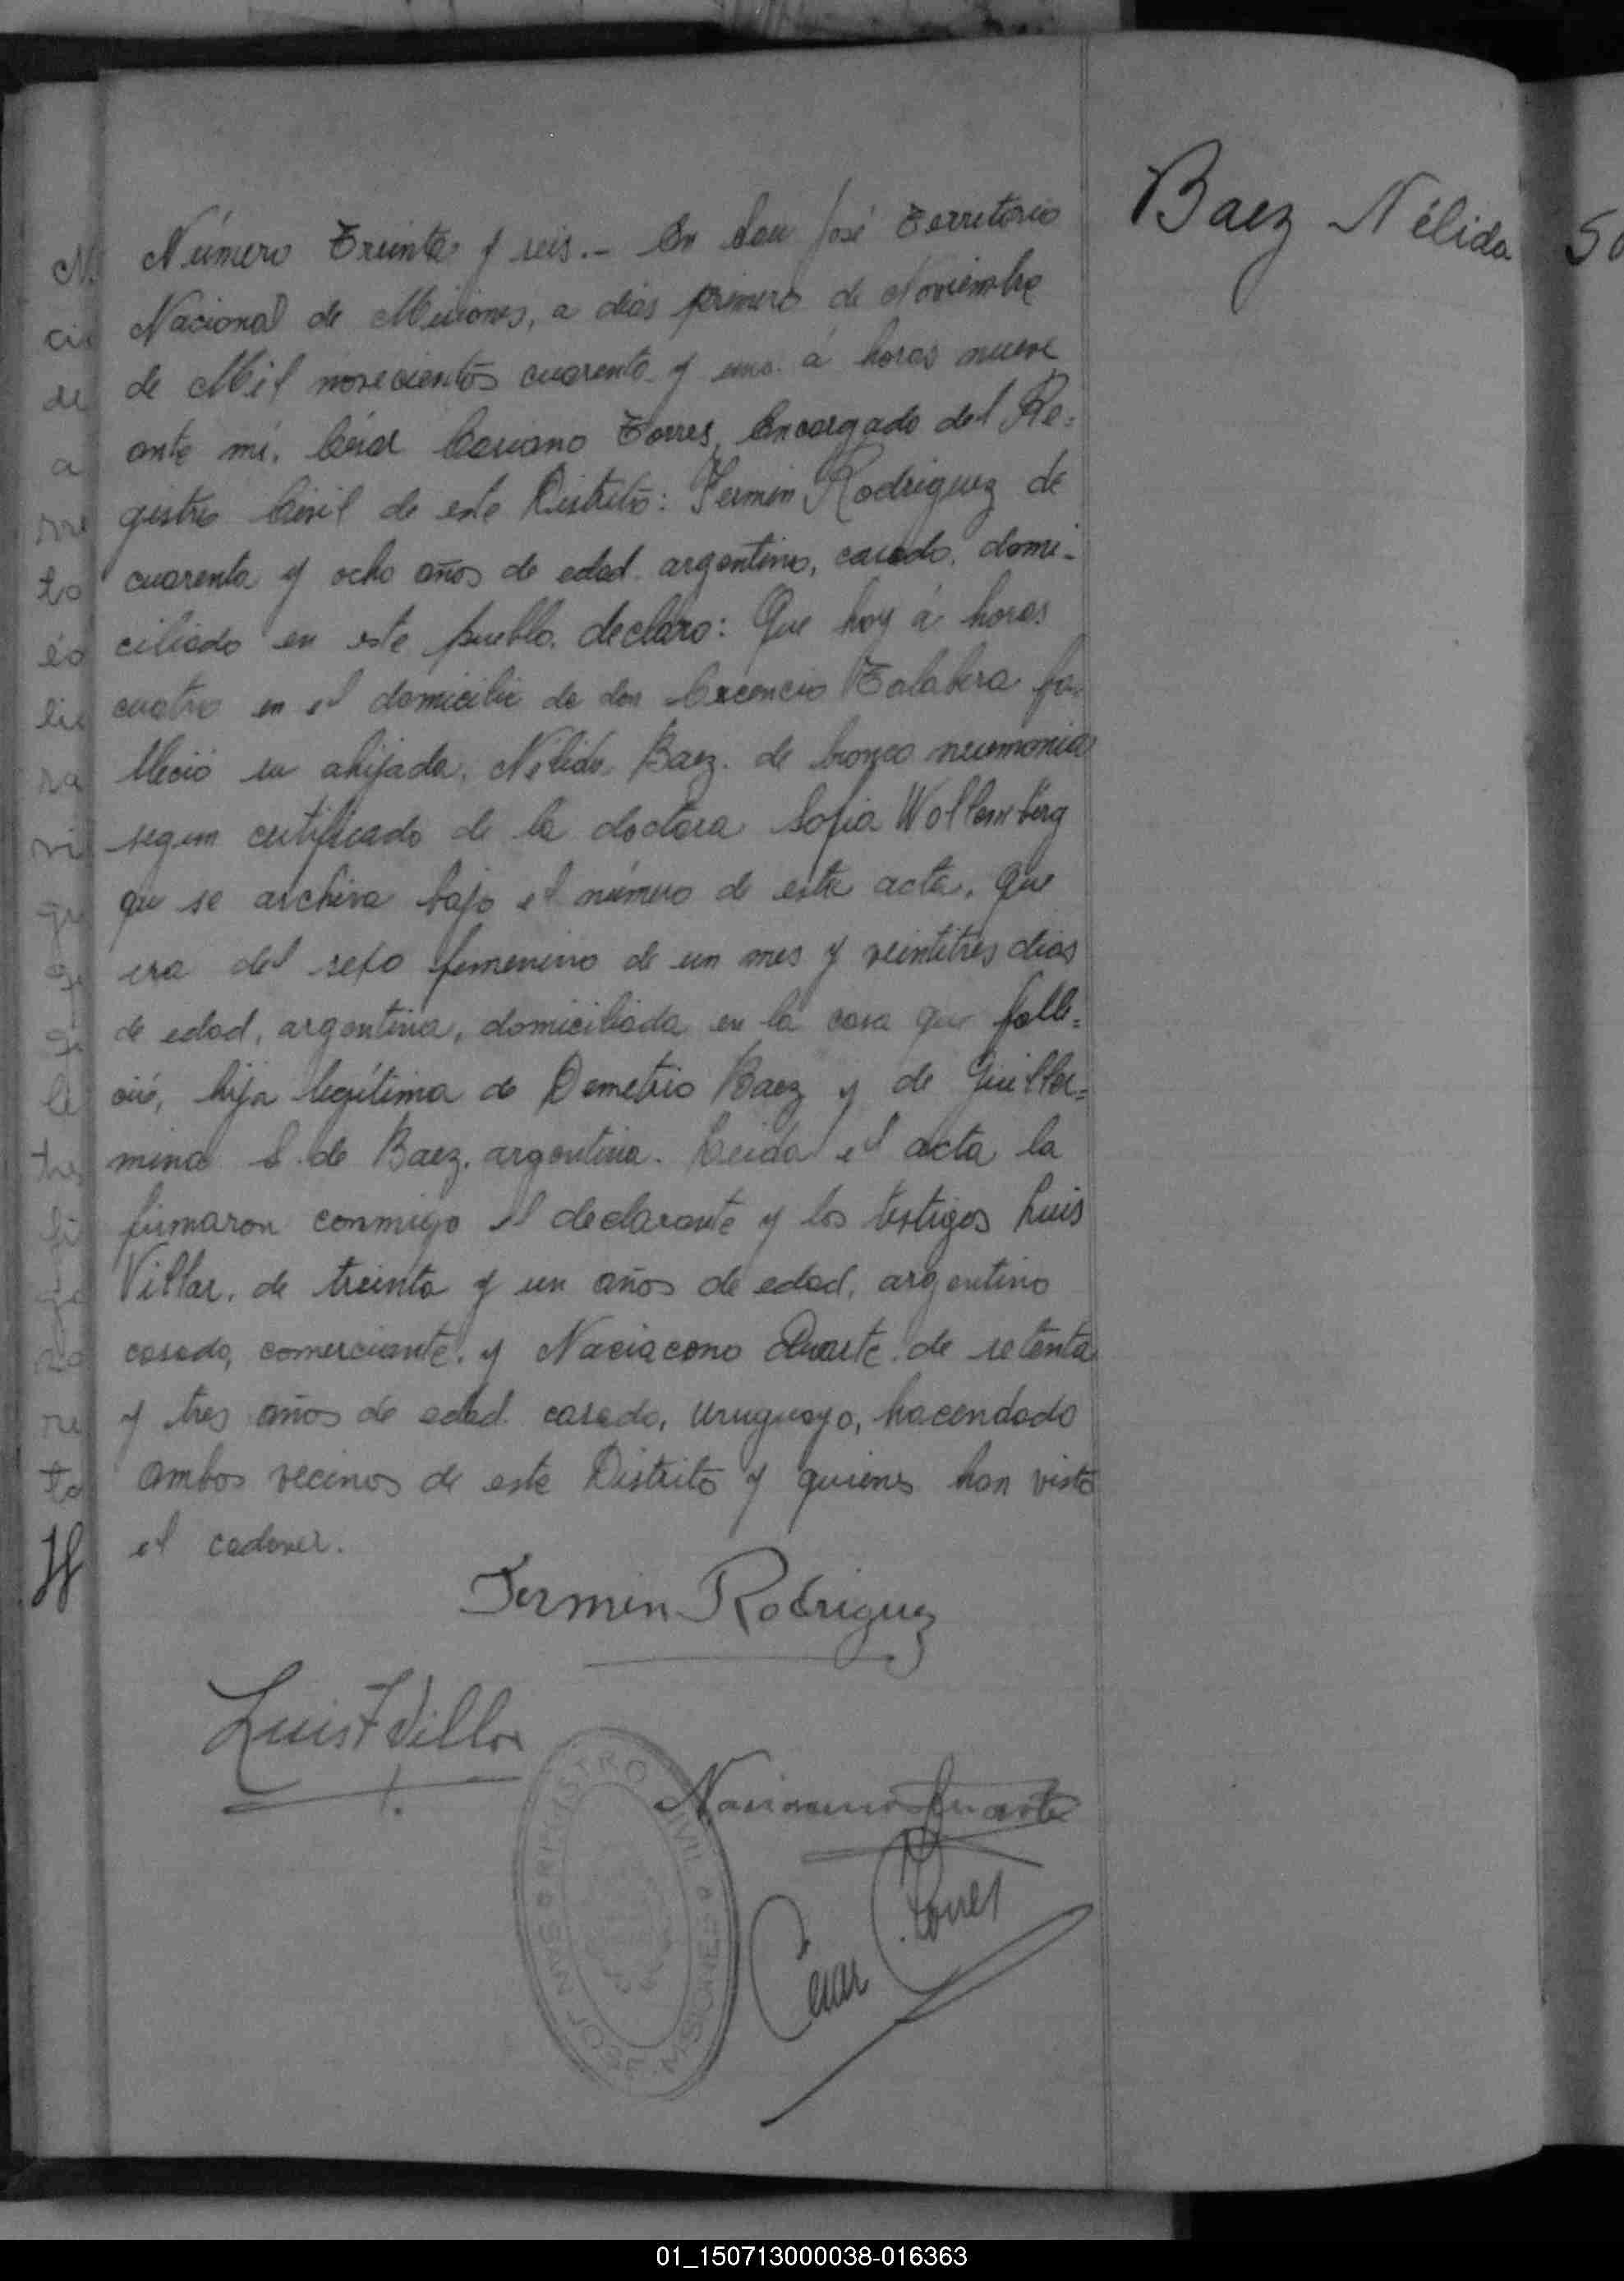 Baez Nélida
Número Treinta y seis.- En San José Territorio
Nacional de Misiones, a dias primero de Noviembre
de Mil novecientos cuarenta y uno. á horas nueve
ante mí. César Torres, Encargado del Re=
gistro Civil de este Distrito: Fermin Rodriguez de
cuarenta y ocho años de edad. argentino, casado. domi-
ciliado en este pueblo. declaro: Que hoy á horas
cuatro en el domicilio de don Talabera fa-
lleció su ahijada. Nélida Baez. de bronco neumonia
segun certificado de la doctora Sofia Wollemberg
que se archiva bajo el número de este acta. que
era del sexo femenino de un mes y veintitres dias
de edad, argentina, domiciliada en la casa que falle=
ció, hija legítima de Demetrio Baez y de Guiller=
mina S. de Baez. argentina. Leida el acta la
firmaron conmigo el declarante y los testigos Luis
Villar. de treinta y un años de edad. argentino
casado, comerciante. y Naciaceno Duarte. de setenta
y tres años de edad. casado, uruguayo, hacendado
ambos vecinos de este Distrito y quienes han visto
el cadaver.
Fermin Rodriguez
Luis F Villar
Duarte
Cesar Torres
REGISTRO CIVIL
MISIONES
01_150713000038-016363